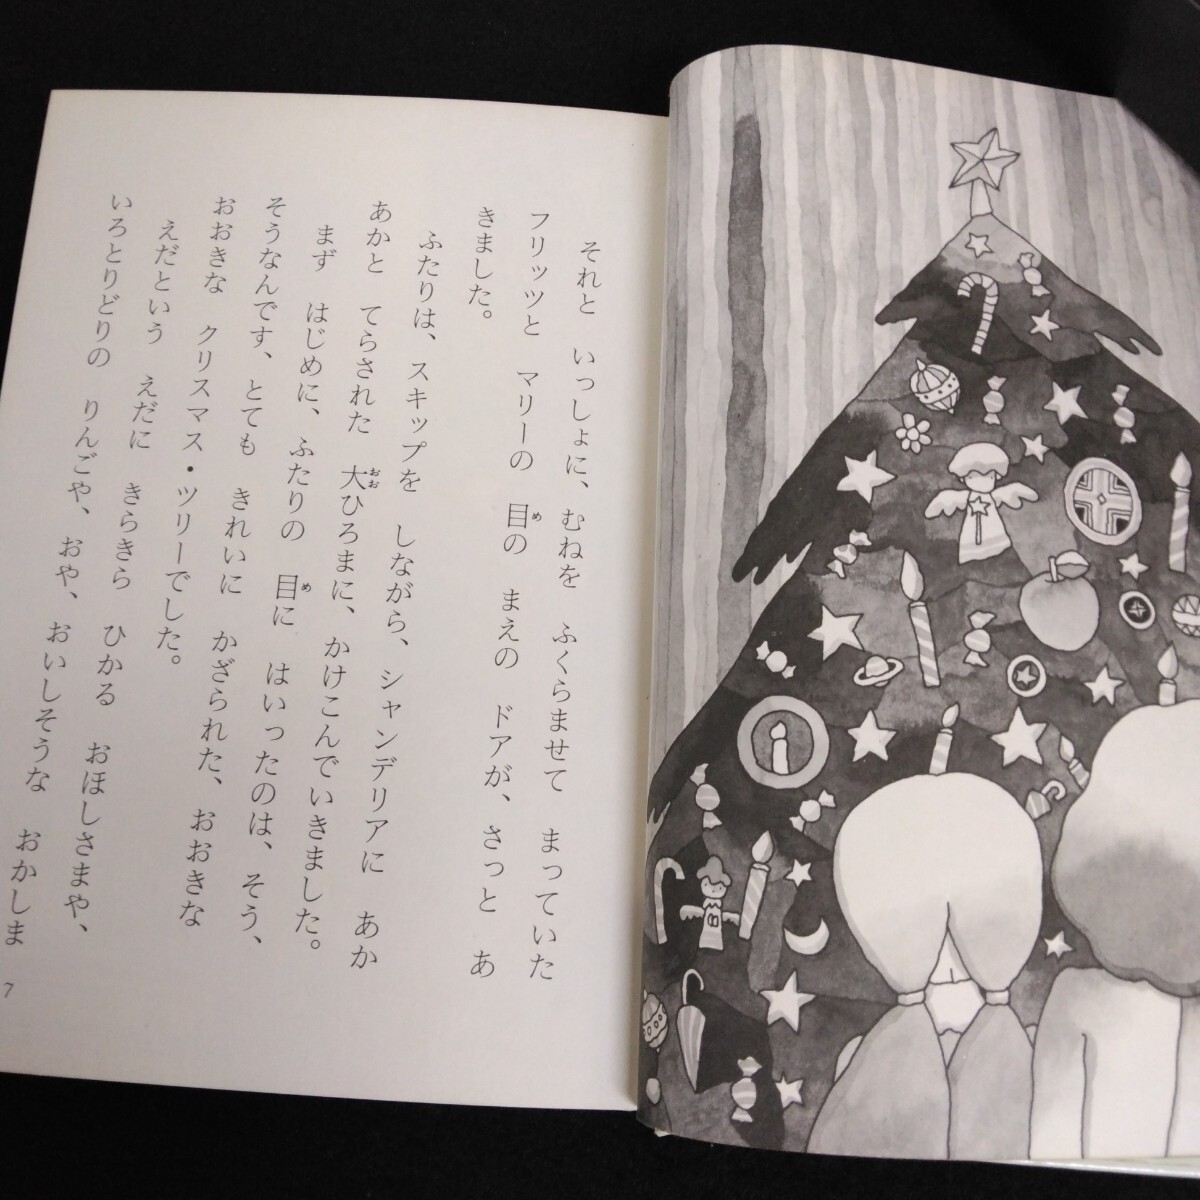 それと　いっしょに、むねを　ふくらませて　まっていた
フリッツと　マリーの　目の　まえの　ドアが、さっと　あ
きました。
ふたりは、スキップを　しながら、シャンデリアに　あか
あかと　てらされた　大ひろまに、かけこんでいきました。
まず　はじめに、ふたりの　目に　はいったのは、そう、
そうなんです、とても　きれいに　かざられた、おおきな
おおきな　クリスマス・ツリーでした。
えだという　えだに　きらきら　ひかる　おほしさまや、
いろとりどりの　りんごや、おや、おいしそうな　おかしま
7